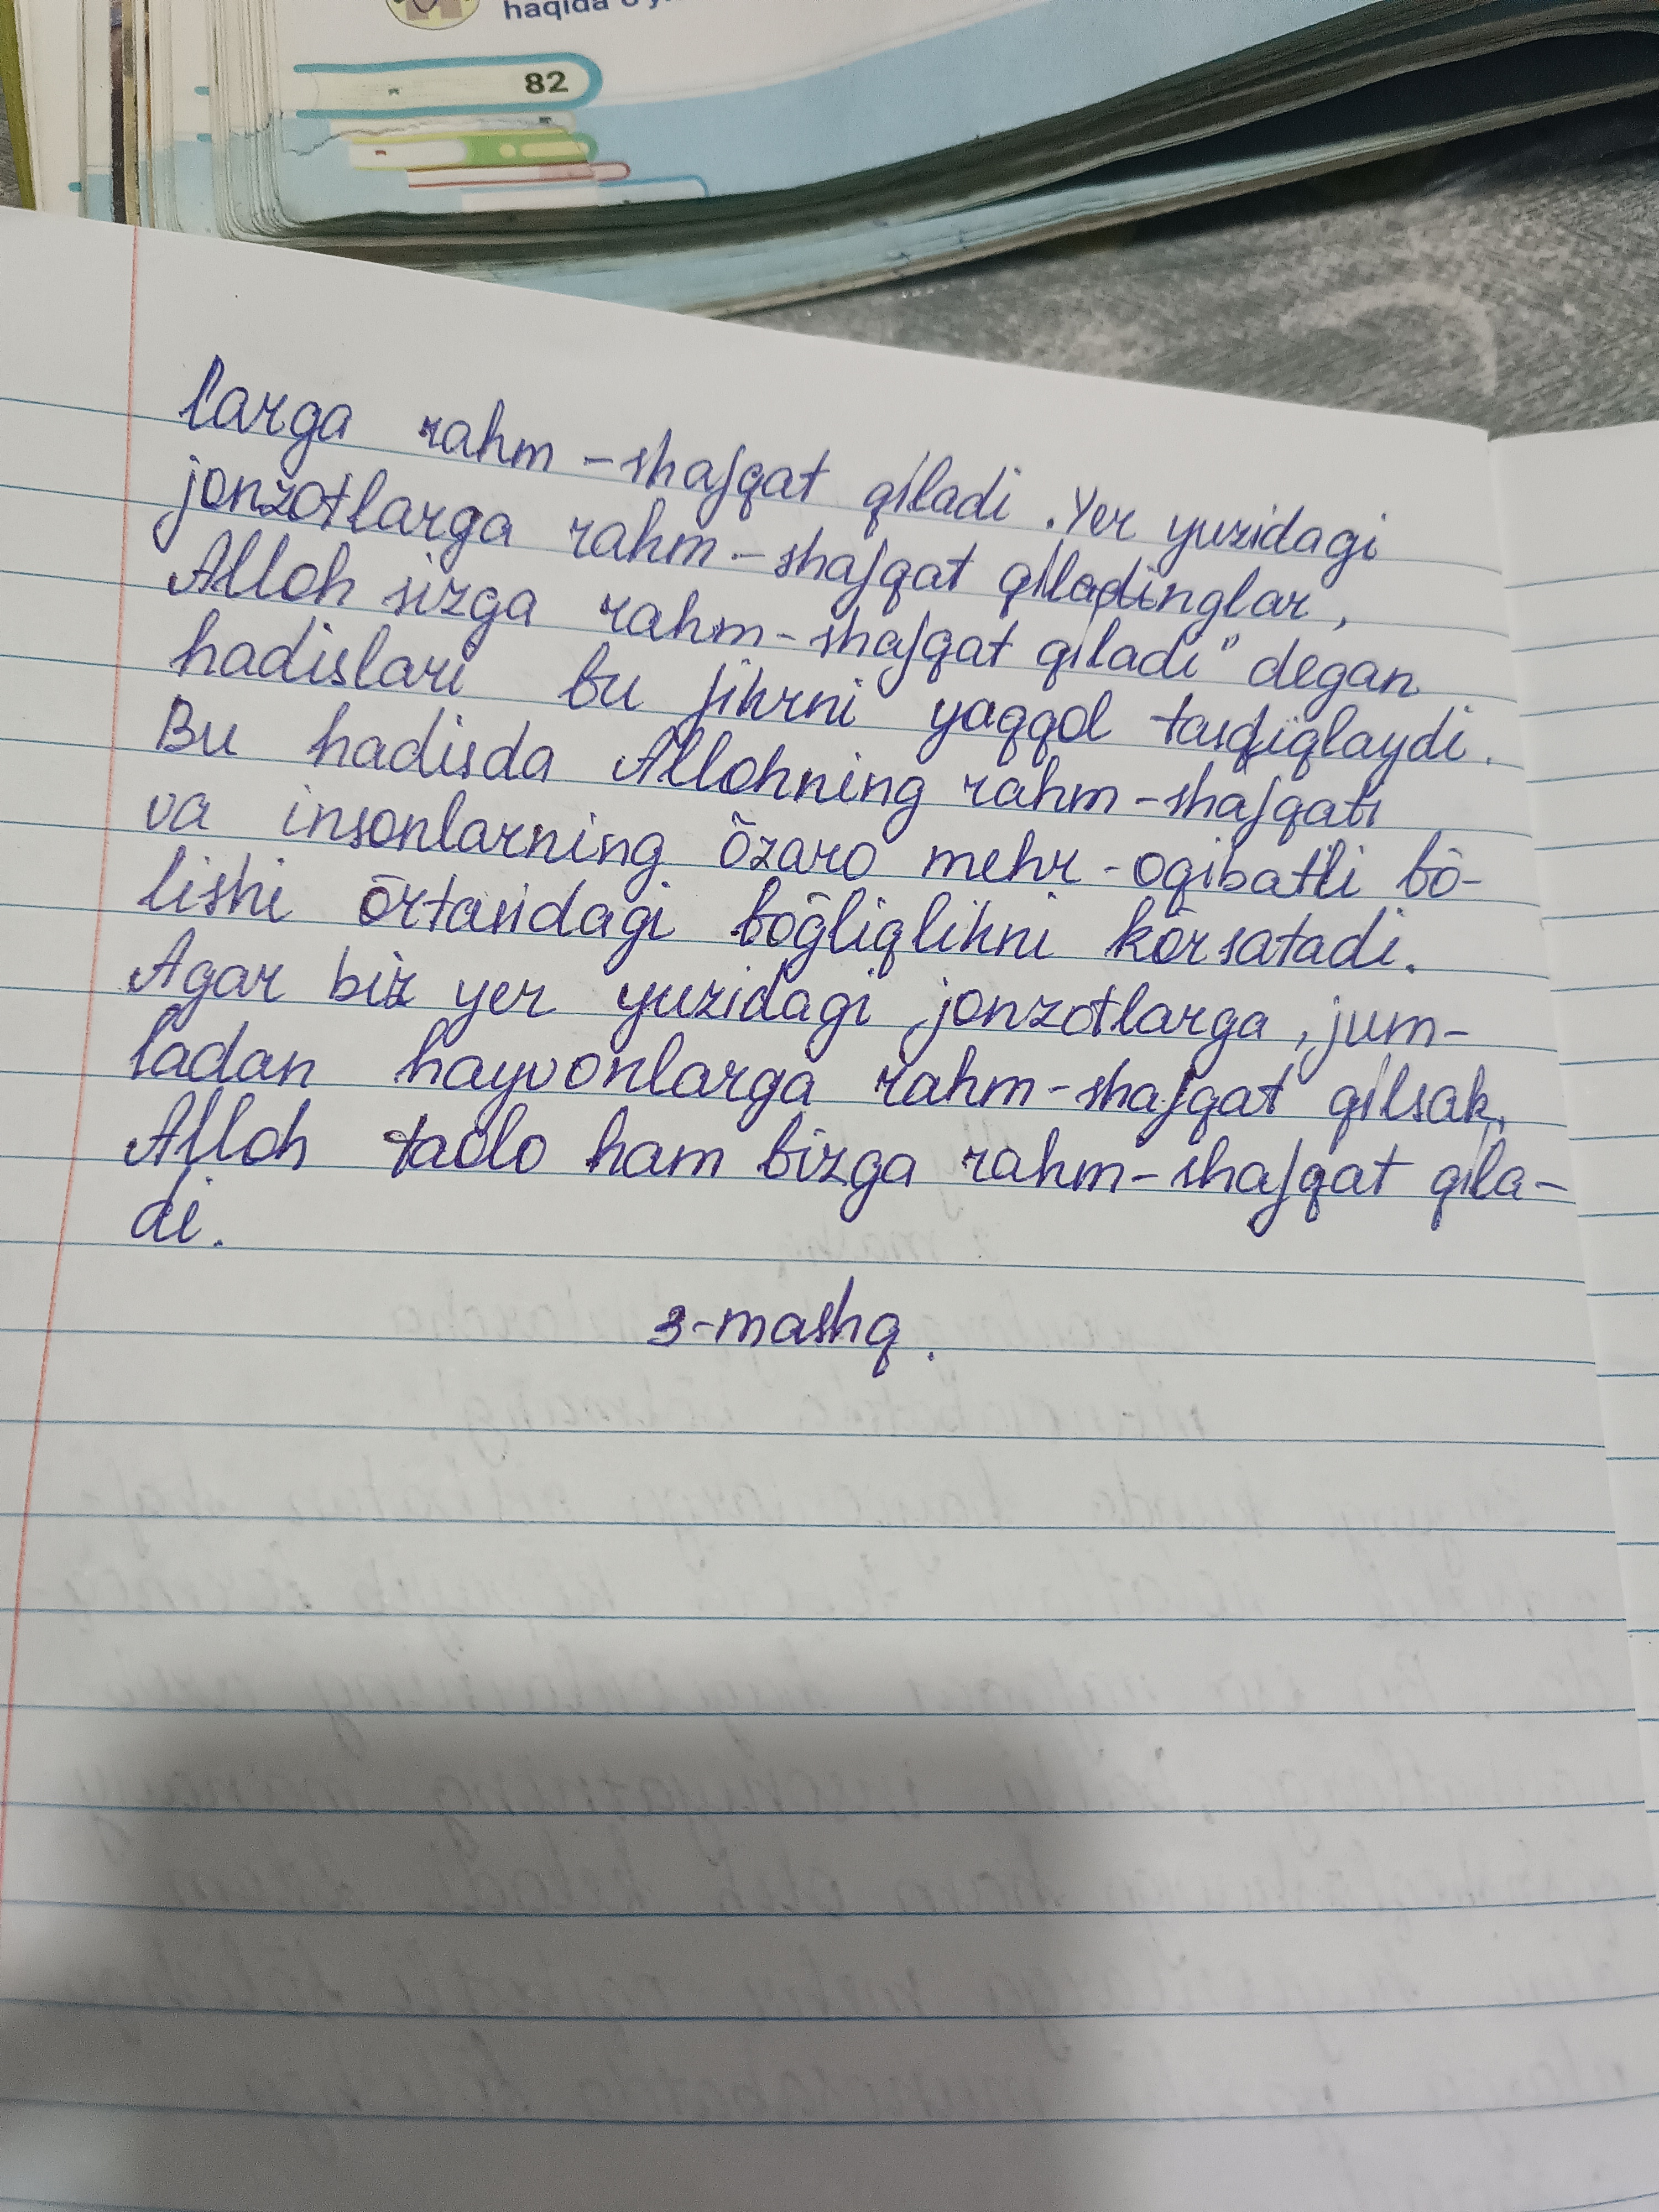 haqida
82
larga rahm-shafqat qiladi. Yer yuzidagi
jonzotlarga rahm-shafqat qiladinglar,
Alloh sizga rahm-shafqat qiladi" degan
hadislari bu fikrni yaqqol tasdiqlaydi.
Bu hadisda Allohning rahm-shafqati
va insonlarning ōzaro mehr-oqibatli bō-
lishi ōrtasidagi bōḡliqlikni kōrsatadi.
Agar biz yer yuzidagi jonzotlarga, jum-
ladan hayvonlarga rahm-shafqat qilsak,
Alloh taolo ham bizga rahm-shafqat qila-
di.
3-mashq.